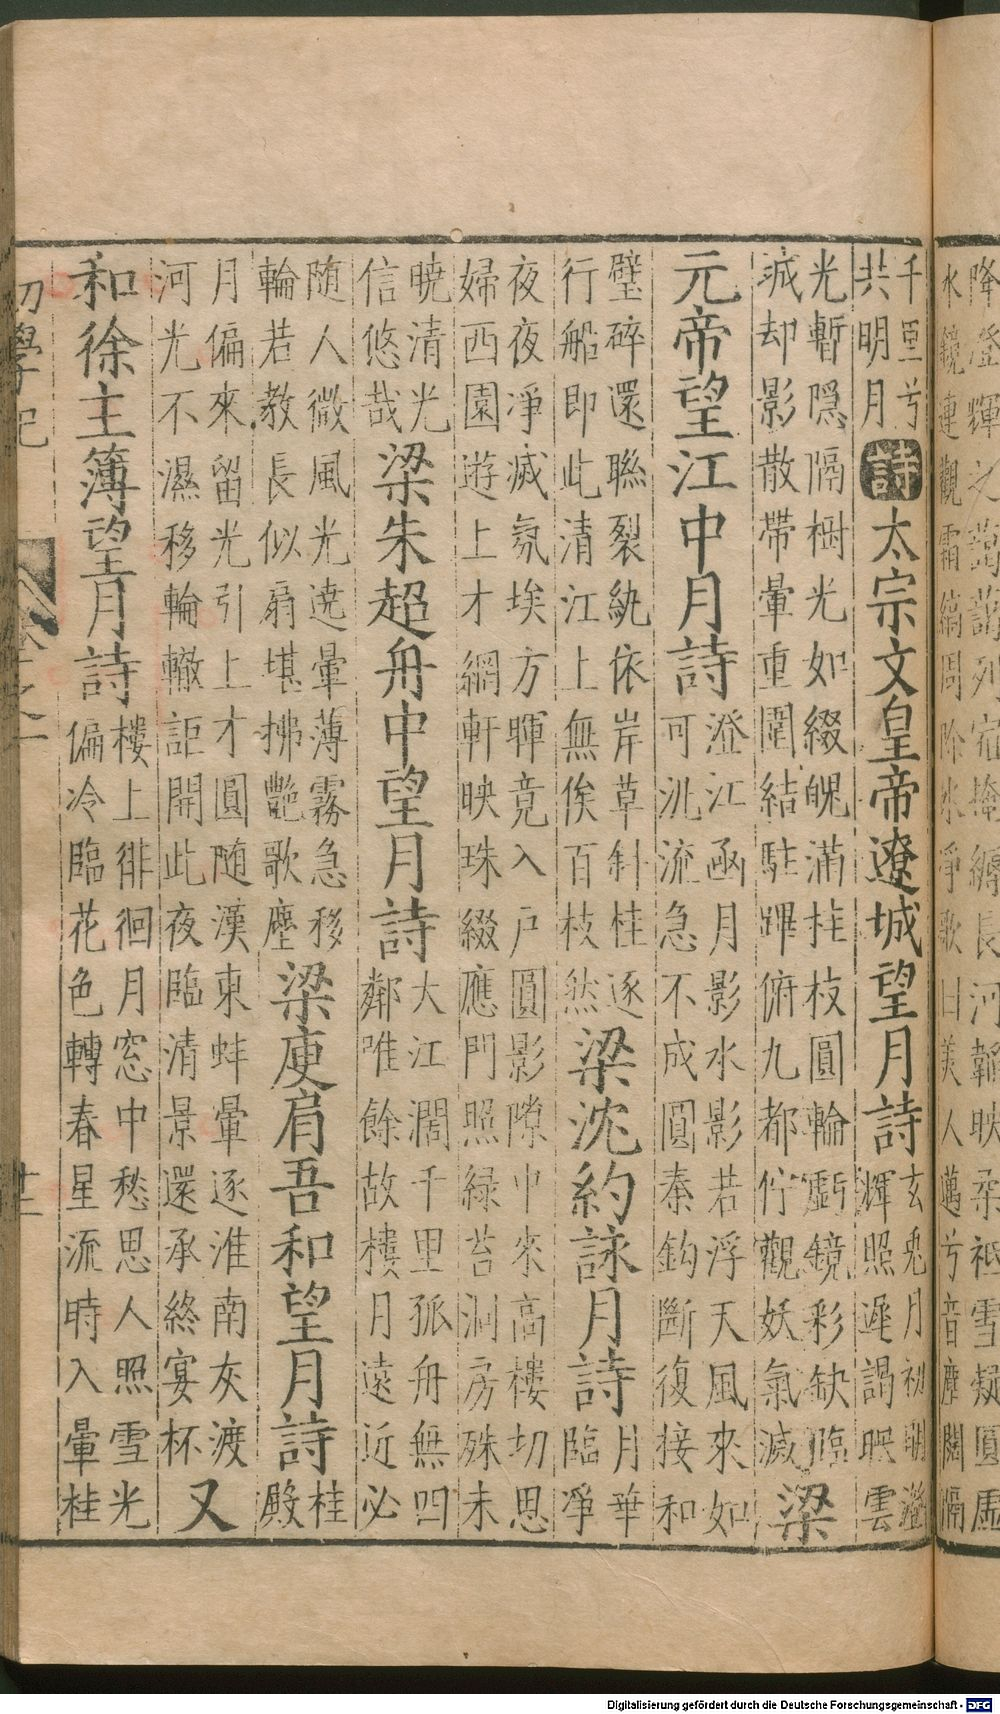 降澄輝之藹藹列宿掩縟長河韜映柔祗雪凝圓
水鏡連觀霜縞周除氷淨歌曰美人邁兮音塵闊隔
千里兮
共明月
詩
太宗文皇帝遼城望月詩
玄兎月初明澄
輝照遼碣映雲
光暫隠隔樹光如綴魄滿桂枝圓輪虧鏡彩缺臨
城却影散帶暈重圍結駐蹕俯九都佇觀妖氣滅
梁
元帝望江中月詩
澄江涵月影水影若浮天風來如
可泚流急不成圓秦鈎斷復接和
璧碎還聯裂紈依岸草斜桂逐
行船即此清江上無俟百枝然
梁沈約詠月詩
月華
臨凈
夜夜凈滅氛埃方暉竟入户圓影隙中來高樓切思
婦西園遊上才網軒映珠綴應門照緑苔洞房殊未
曉清光
信悠哉
梁朱超舟中望月詩
大江濶千里孤舟無四
鄰唯餘故樓月遠近必
随人微風光遶暈薄霧急移
輪若教長似扇堪拂艷歌塵
梁庾肩吾和望月詩
桂
殿
月偏來留光引上才圓随漢東蚌暈逐淮南灰渡
河光不濕移輪轍詎開此夜臨清景還承終宴杯
又
和徐主簿望月詩
樓上徘徊月窓中愁思人照雪光
偏冷臨花色轉春星流時入暈桂
初學記
卷之一
廿三
Digitalisierung gefördert durch die Deutsche Forschungsgemeinschaft - DFG